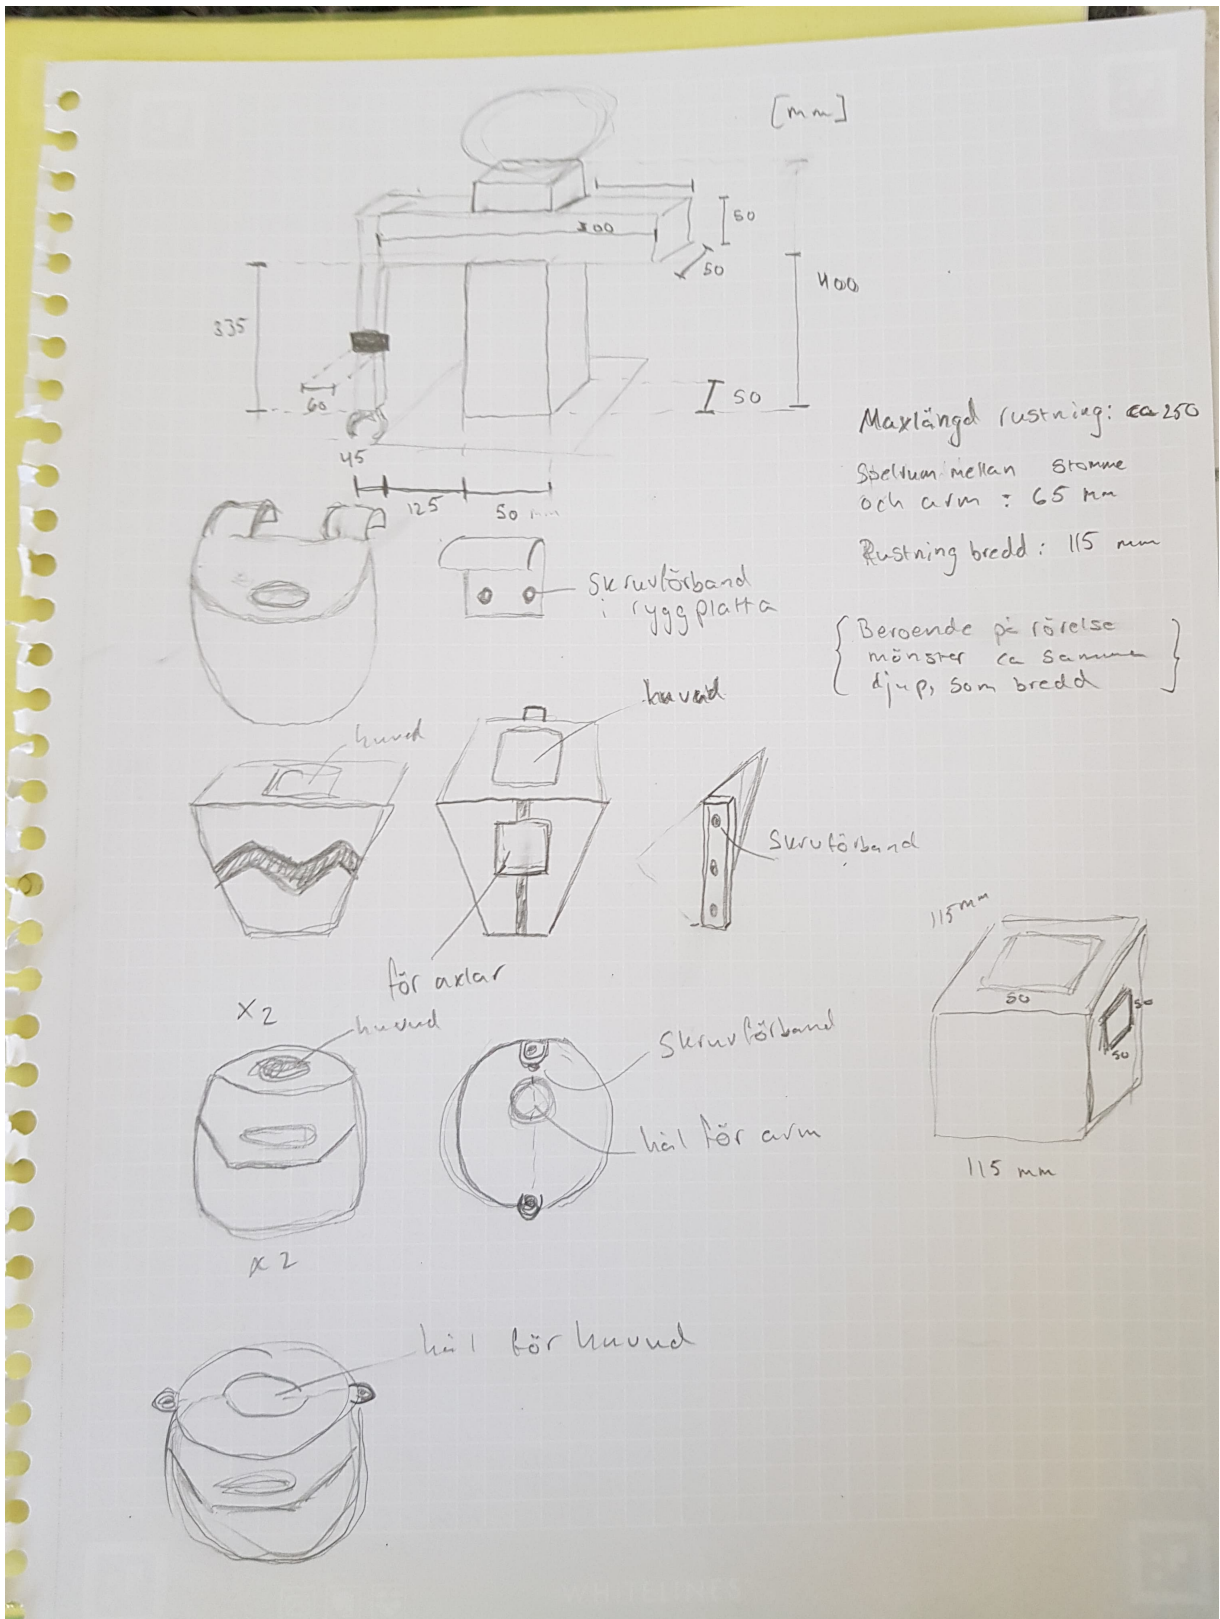 [mm]
50
300
50
400
335
60
50
45
125
50 mm
Maxlängd rustning: ca 250
Spelrum mellan stomme
och arm : 65 mm
Rustning bredd : 115 mm
Skruvförband
i ryggplatta
{ Beroende på rörelse
mönster ca samma
djup, som bredd }
huvud
huvud
Skruvförband
för axlar
115 mm
50
50
50
115 mm
X2
huvud
Skruvförband
hål för arm
x2
hål för huvud